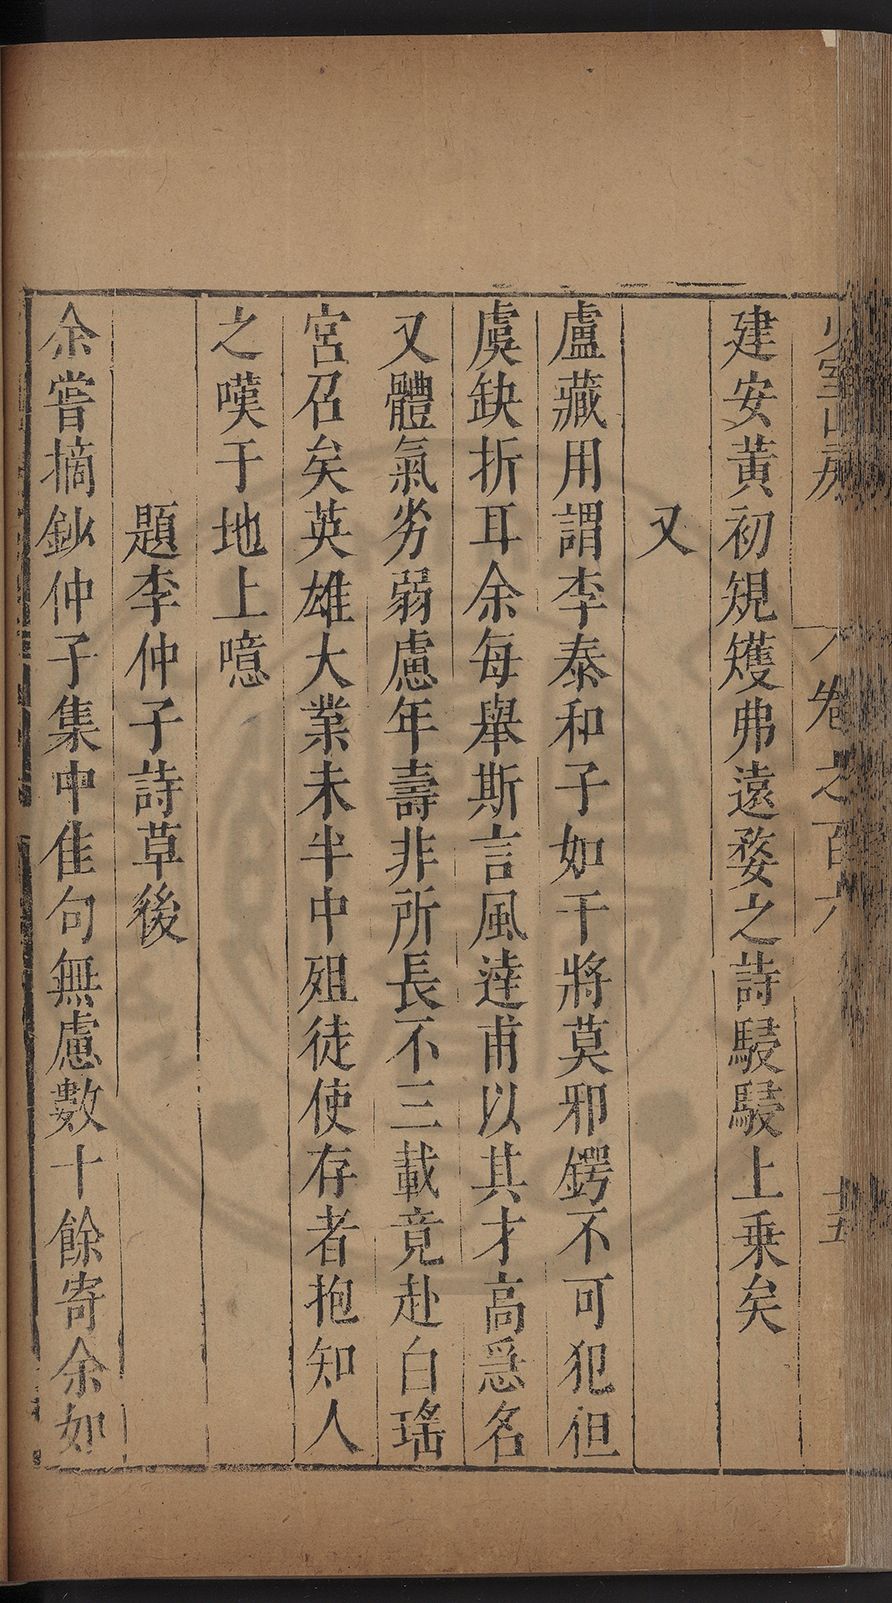 少室山房
卷之百六
十五
建安黃初規矱弗遠婺之詩駸駸上乗矣
又
盧藏用謂李泰和子如干將莫邪鍔不可犯但
虞缺折耳余每舉斯言風逹甫以其才高忌名
又體氣劣弱慮年壽非所長不三載竟赴白瑤
宮召矣英雄大業未半中殂徒使存者抱知人
之嘆于地上噫
題李仲子詩草後
余嘗摘鈔仲子集中佳句無慮數十餘寄余如